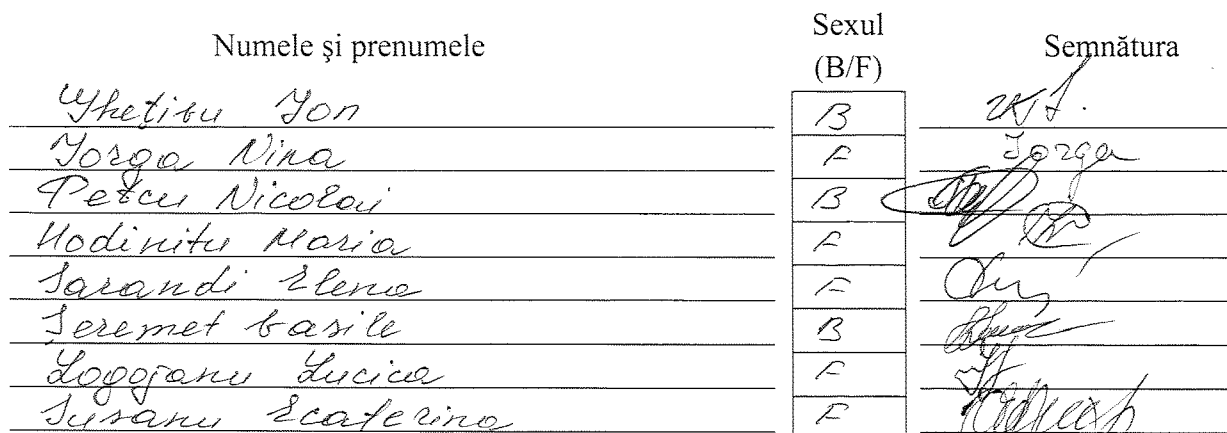 Numele și prenumele Sexul (B/F) Semnătura
Ghețivu Ion B
Iorga Nina F Iorga
Petcu Nicolai B
Hodinitu Maria F
Sarandi Elena F
Șeremet Vasile B
Logojanu Lucica F
Susanu Ecaterina F